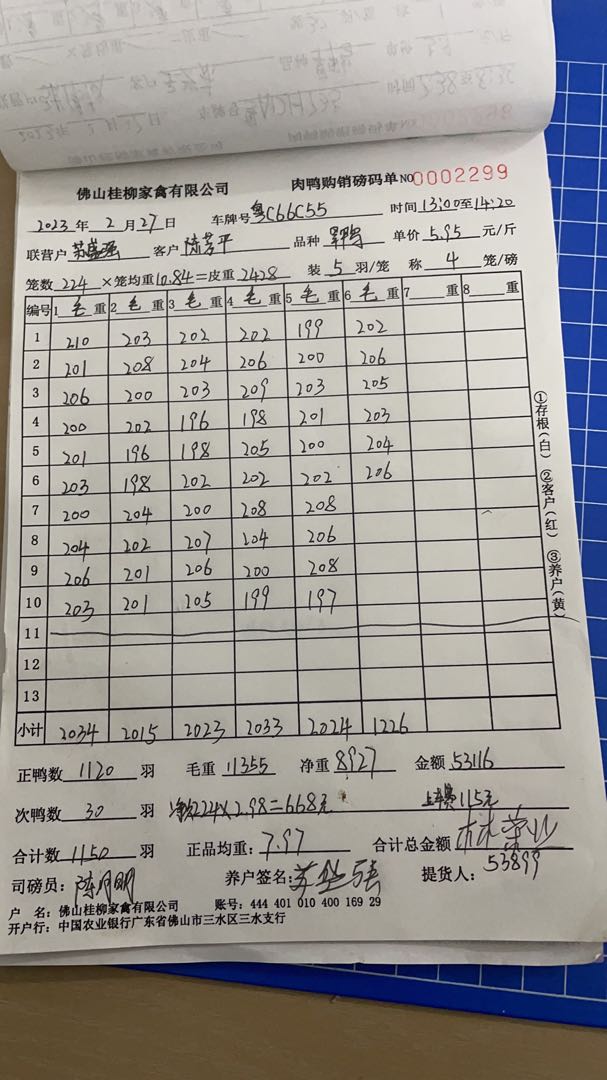 佛山桂柳家禽有限公司 肉鸭购销磅码单 NO 0002299
2023年 2月27日 车牌号 粤C66C55 时间 13:00至14:20
联营户 客户 陈芳平 品种 单价 5.95 元/斤
笼数 224 ×笼均重 10.84 =皮重 2428 装 5 羽/笼 称 4 笼/磅
编号 1 毛 重 2 毛 重 3 毛 重 4 毛 重 5 毛 重 6 毛 重 7 重 8 重
1 210 203 202 202 199 202
2 201 208 204 206 200 206
3 206 200 203 209 203 205
4 200 202 196 198 201 203
5 201 196 198 205 200 204
6 203 198 202 202 202 206
7 200 204 200 208 208
8 204 202 207 204 206
9 206 201 206 200 208
10 203 201 205 199 197
11
12
13
小计 2034 2015 2023 2033 2024 1226
正鸭数 1120 羽 毛重 11355 净重 8927 金额 53116
次鸭数 30 羽 224×2.98=668元 115元
合计数 1150 羽 正品均重: 7.97 合计总金额
司磅员: 陈月明 养户签名: 提货人: 53899
户 名: 佛山桂柳家禽有限公司 账号: 444 401 010 400 169 29
开户行: 中国农业银行广东省佛山市三水区三水支行
①存根(白) ②客户(红) ③养户(黄)